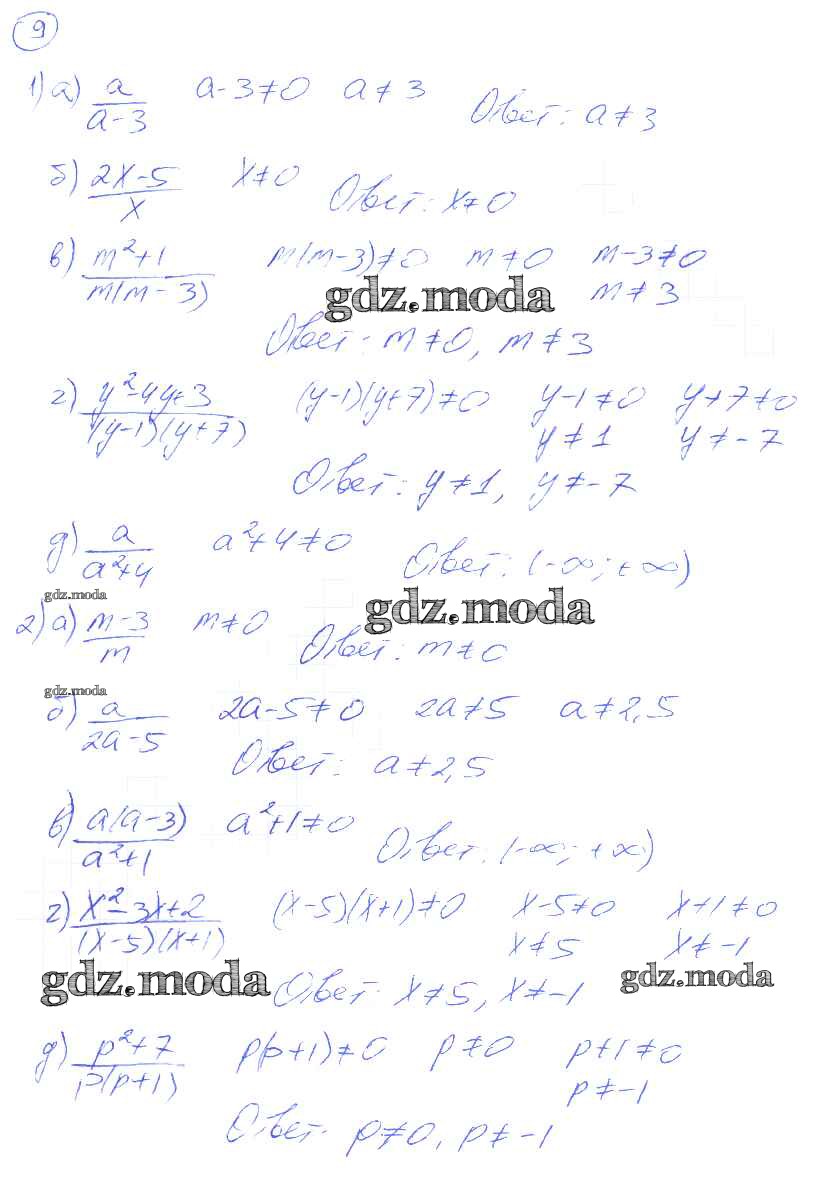 9
1) а) a/(a-3) a-3≠0 a≠3 Ответ: a≠3
б) (2x-5)/x x≠0 Ответ: x≠0
в) (m²+1)/(m(m-3)) m(m-3)≠0 m≠0 m-3≠0
m≠3
gdz.moda
Ответ: m≠0, m≠3
г) (y²-4y+3)/((y-1)(y+7)) (y-1)(y+7)≠0 y-1≠0 y+7≠0
y≠1 y≠-7
Ответ: y≠1, y≠-7
д) a/(a²+4) a²+4≠0 Ответ: (-∞; +∞)
gdz.moda
gdz.moda
2) а) (m-3)/m m≠0 Ответ: m≠0
gdz.moda
б) a/(2a-5) 2a-5≠0 2a≠5 a≠2,5
Ответ: a≠2,5
в) a(a-3)/(a²+1) a²+1≠0 Ответ: (-∞; +∞)
г) (x²-3x+2)/((x-5)(x+1)) (x-5)(x+1)≠0 x-5≠0 x+1≠0
x≠5 x≠-1
gdz.moda
Ответ: x≠5, x≠-1
gdz.moda
д) (p²+7)/(p(p+1)) p(p+1)≠0 p≠0 p+1≠0
p≠-1
Ответ: p≠0, p≠-1